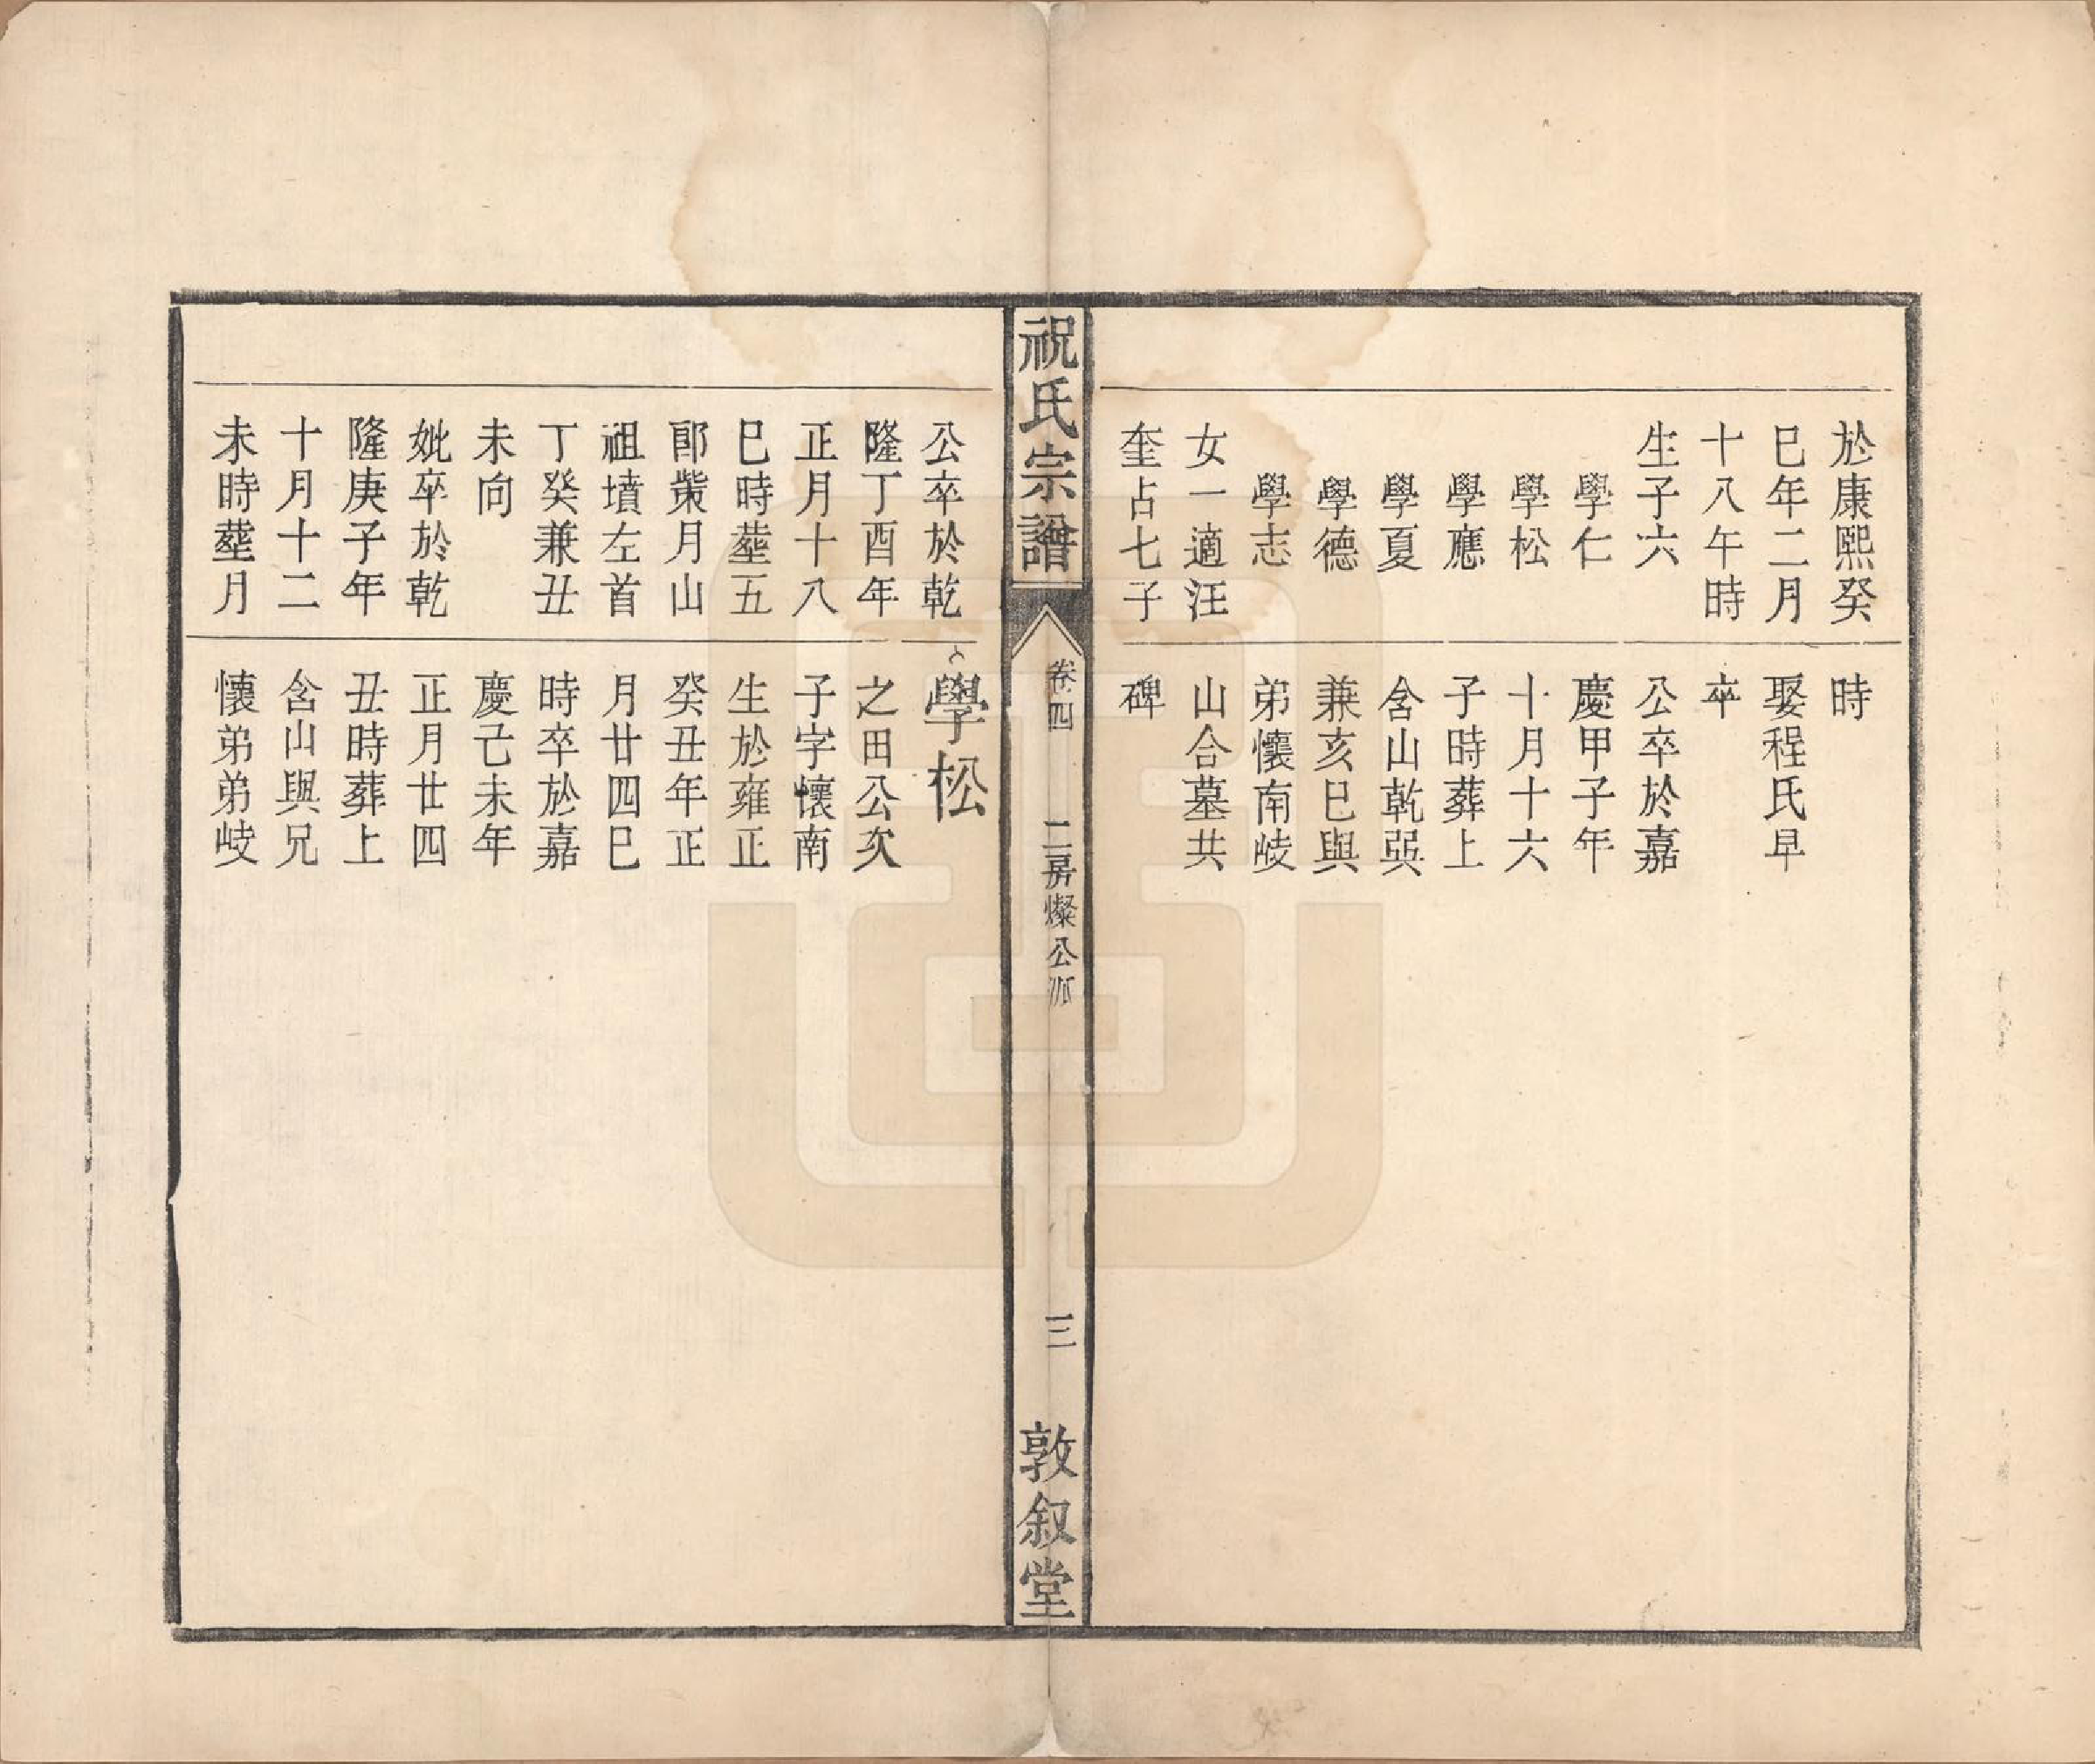 於康熙癸
巳年二月
十八午時
生子六
學仁
學松
學應
學夏
學德
學志
女一適汪
奎占七子
時
娶程氏早
卒
公卒於嘉
慶甲子年
十月十六
子時葬上
含山乾巽
兼亥巳與
弟懷南岐
山合墓共
碑
祝氏宗譜
卷四
二房燦公派
三
敦叙堂
公卒於乾
隆丁酉年
正月十八
巳時塟五
郎紫月山
祖墳左首
丁癸兼丑
未向
妣卒於乾
隆庚子年
十月十二
未時塟月
學松
之田公次
子字懷南
生於雍正
癸丑年正
月廿四巳
時卒於嘉
慶己未年
正月廿四
丑時葬上
含山與兄
懷弟弟岐